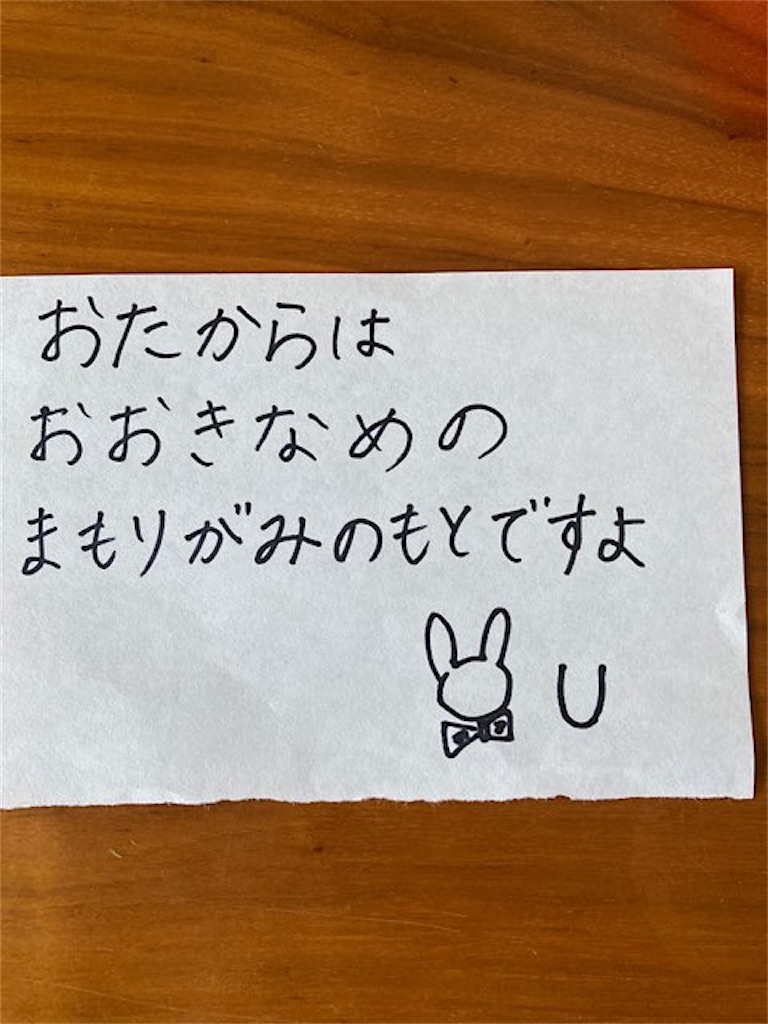 おたからは
おおきなめの
まもりがみのもとですよ
U